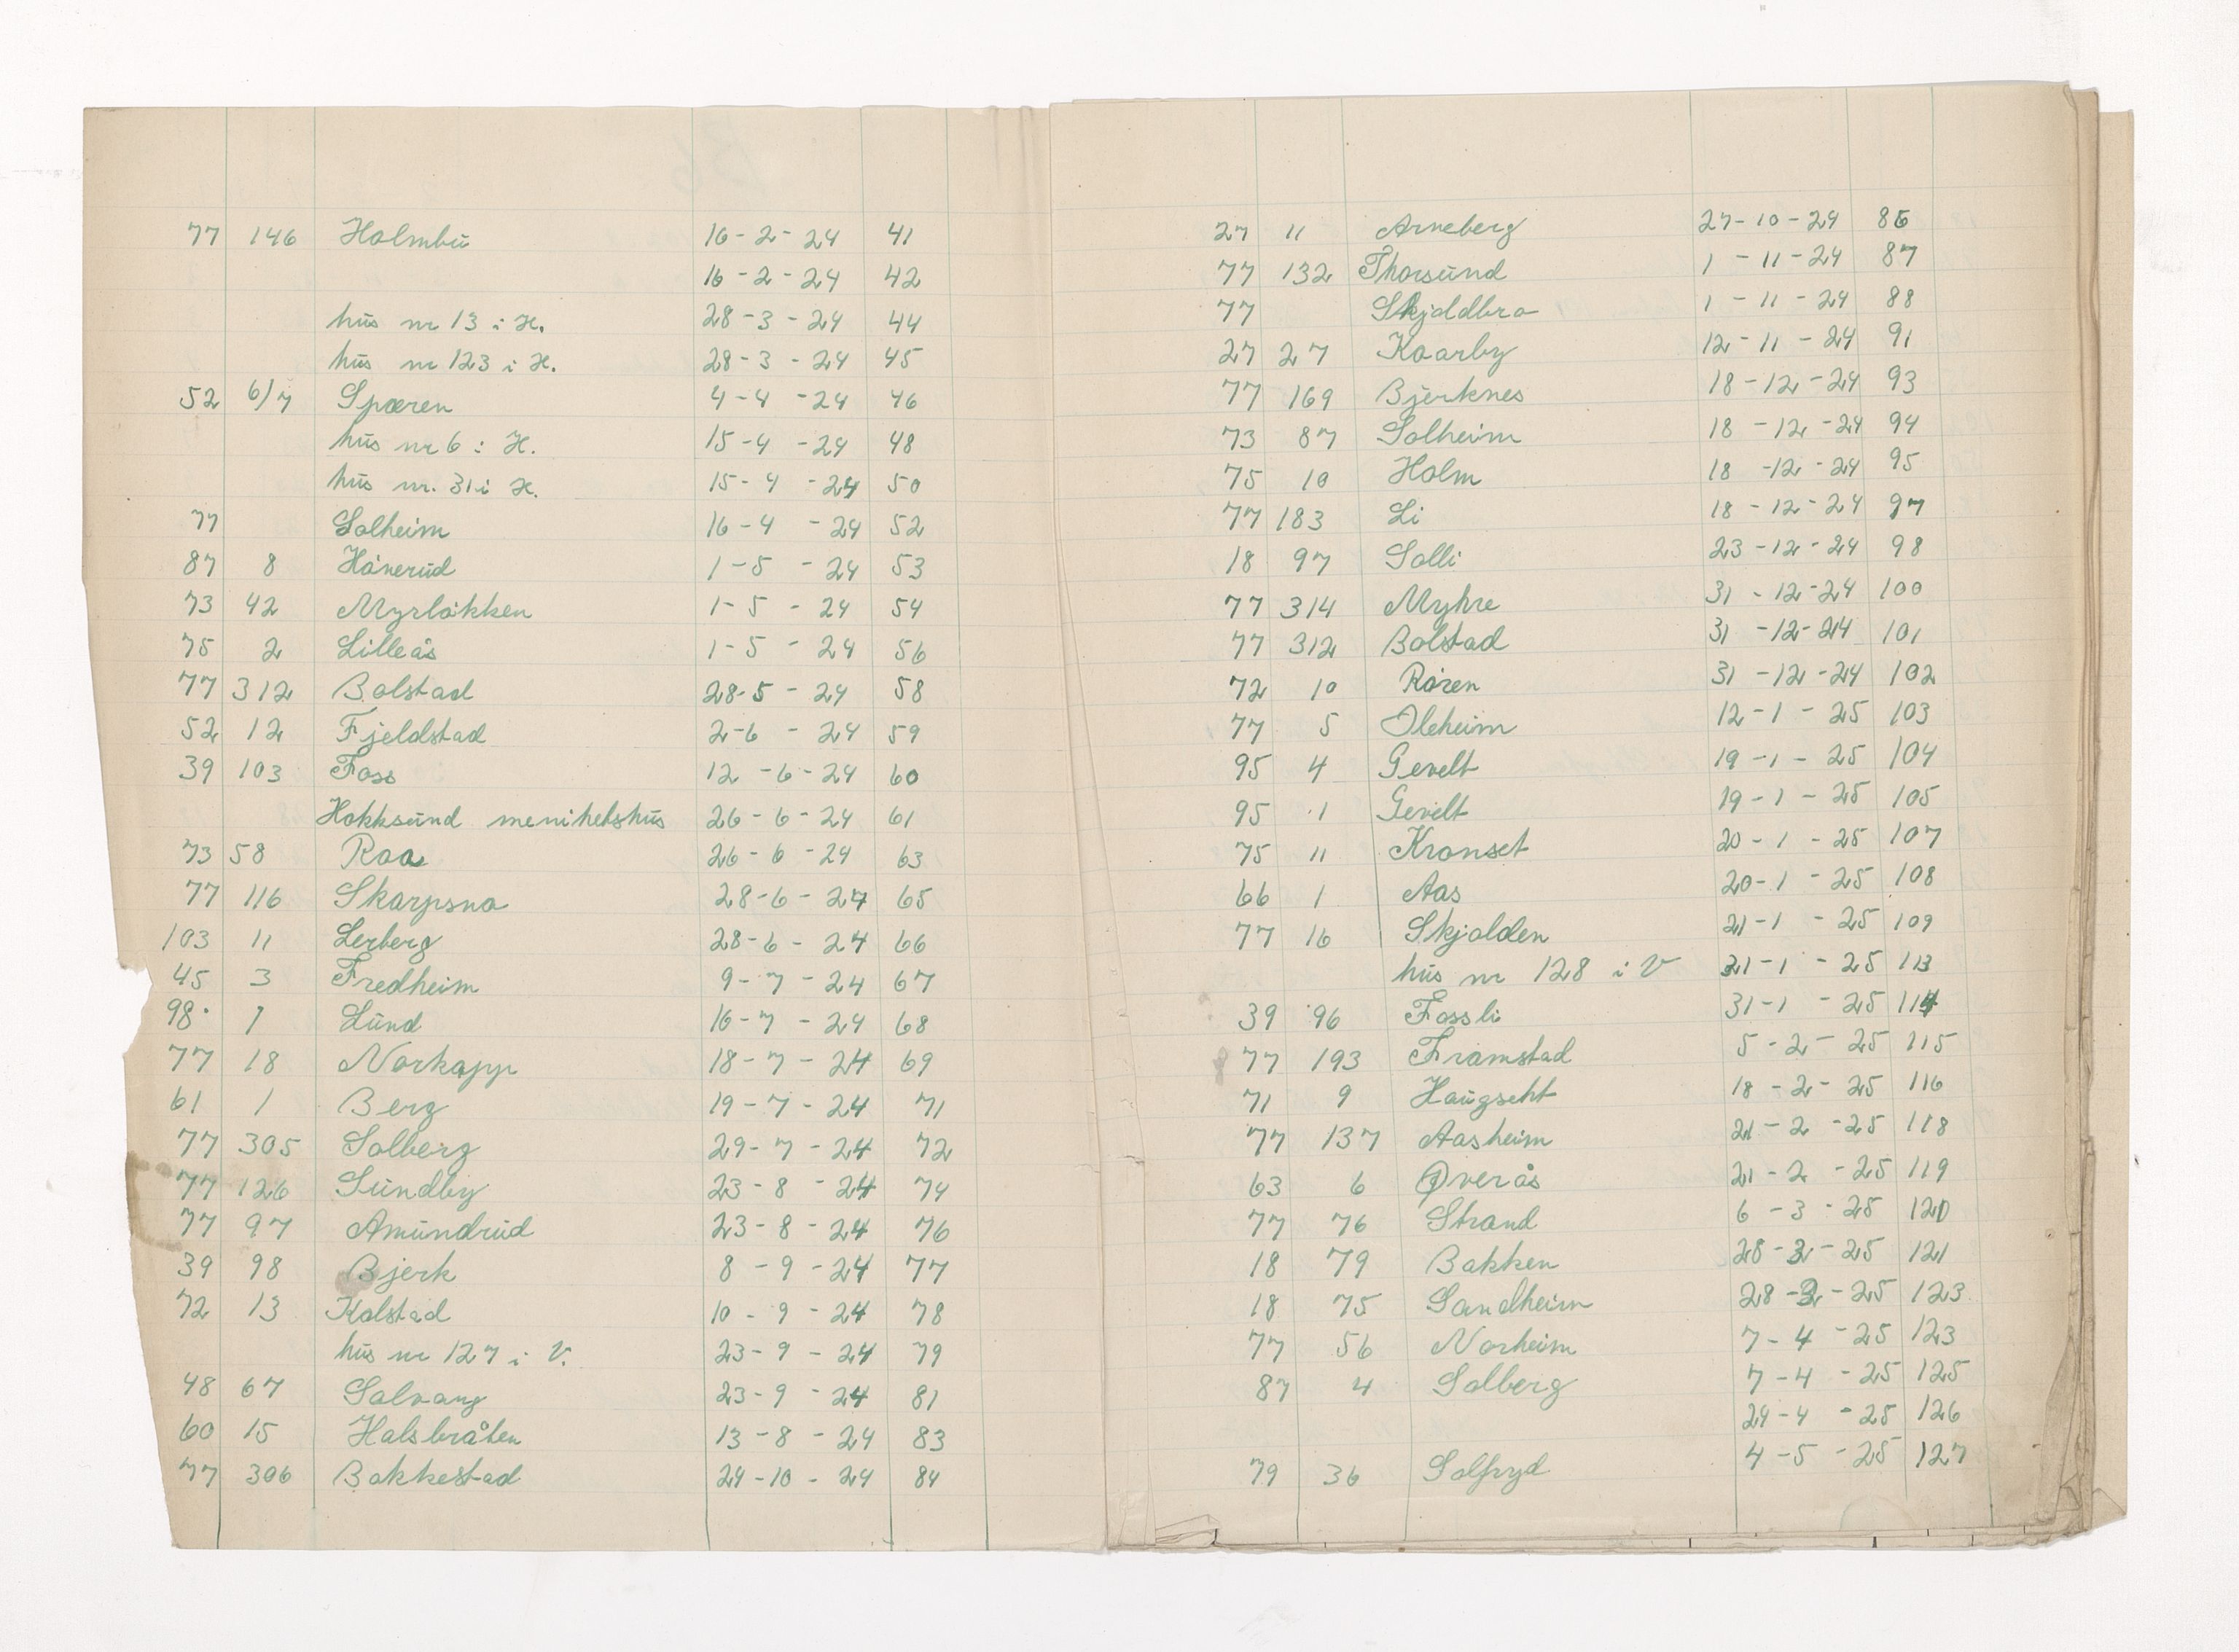 77 146 Holmbu 16-2-24 41
16-2-24 42
hus nr 13 i H. 28-3-24 44
hus nr 123 i H. 28-3-24 45
52 6/7 Spæren 4-4-24 46
hus nr 6 i H. 15-4-24 48
hus nr. 31 i H. 15-4-24 50
77 Solheim 16-4-24 52
87 8 Hånerud 1-5-24 53
73 42 Myrløkken 1-5-24 54
75 2 Lilleås 1-5-24 56
77 312 Bolstad 28-5-24 58
52 12 Fjeldstad 2-6-24 59
39 103 Foss 12-6-24 60
Hokksund menihetshus 26-6-24 61
73 58 Raa 26-6-24 63
77 116 Skarpsno 28-6-24 65
103 11 Lerberg 28-6-24 66
45 3 Fredheim 9-7-24 67
98 1 Lund 16-7-24 68
77 18 Norkapp 18-7-24 69
61 1 Berg 19-7-24 71
77 305 Solberg 29-7-24 72
77 126 Sundby 23-8-24 74
77 97 Amundrud 23-8-24 76
39 98 Bjerk 8-9-24 77
72 13 Kolstad 10-9-24 78
hus nr 127 i V. 23-9-24 79
48 67 Solvang 23-9-24 81
60 15 Halsbråten 13-8-24 83
77 306 Bakkestad 24-10-24 84
27 11 Arneberg 27-10-24 86
77 132 Thorsund 1-11-24 87
77 Skjoldbra 1-11-24 88
27 27 Kaarby 12-11-24 91
77 169 Bjerknes 18-12-24 93
73 87 Solheim 18-12-24 94
75 10 Holm 18-12-24 95
77 183 Li 18-12-24 97
18 97 Solli 23-12-24 98
77 314 Myhre 31-12-24 100
77 312 Bolstad 31-12-24 101
72 10 Røren 31-12-24 102
77 5 Oleheim 12-1-25 103
95 4 Gevelt 19-1-25 104
95 1 Gevelt 19-1-25 105
75 11 Kronset 20-1-25 107
66 1 Aas 20-1-25 108
77 16 Skjolden 21-1-25 109
hus nr 128 i V 31-1-25 113
39 96 Fossli 31-1-25 114
77 193 Framstad 5-2-25 115
71 9 Haugseht 18-2-25 116
77 137 Aasheim 21-2-25 118
63 6 Øverås 21-2-25 119
77 76 Strand 6-3-25 120
18 79 Bakken 28-3-25 121
18 75 Sandheim 28-3-25 123
77 56 Norheim 7-4-25 123
87 4 Solberg 7-4-25 125
24-4-25 126
79 36 Solfryd 4-5-25 127